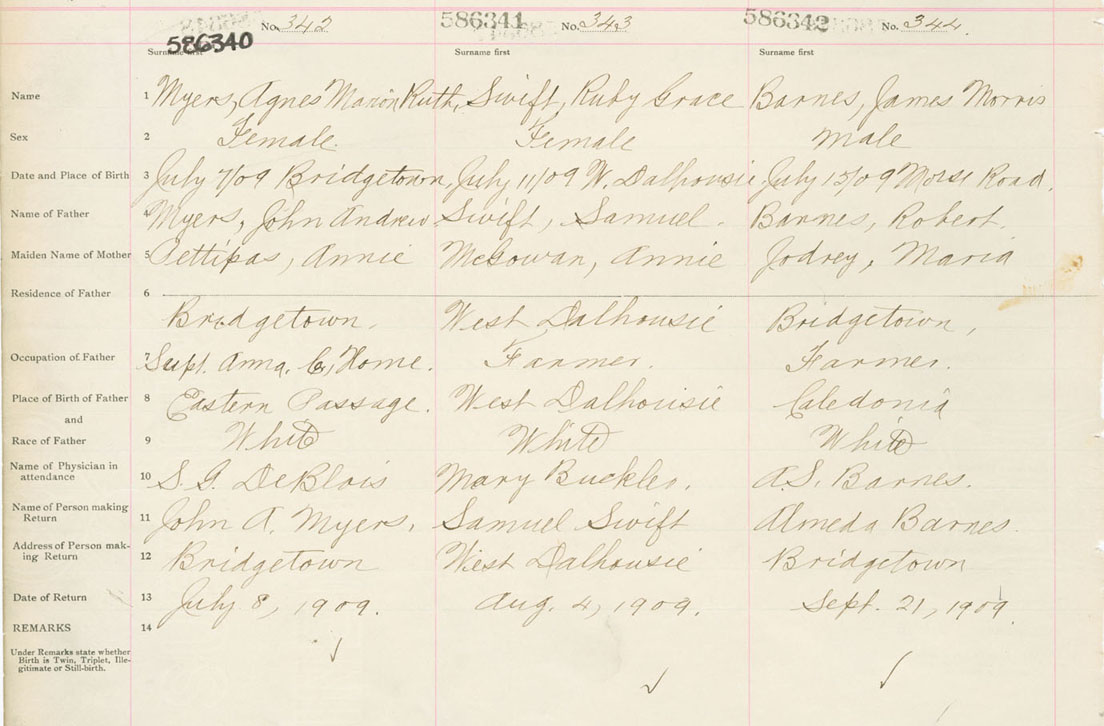 586340 No. 342 586341 No. 343 586342 No. 344.
Surname first Surname first Surname first
Name 1 Myers, Agnes Marion Ruth, Swift, Ruby Grace Barnes, James Morris
Sex 2 Female. Female male
Date and Place of Birth 3 July 7/09 Bridgetown, July 11/09 W. Dalhousie July 15/09 Morse Road.
Name of Father 4 Myers, John Andrew. Swift, Samuel. Barnes, Robert.
Maiden Name of Mother 5 Pettipas, Annie McGowan, Annie Jodrey, Maria
Residence of Father 6
Bridgetown. West Dalhousie Bridgetown,
Occupation of Father 7 Supt. Anna. Co. Home. Farmer. Farmer.
Place of Birth of Father 8 Eastern Passage. West Dalhousie Caledonia
and
Race of Father 9 White White White
Name of Physician in
attendance 10 S. G. DeBlois Mary Buckler. A.S. Barnes.
Name of Person making
Return 11 John A. Myers. Samuel Swift Almeda Barnes.
Address of Person mak-
ing Return 12 Bridgetown West Dalhousie Bridgetown
Date of Return 13 July 8, 1909. Aug. 4, 1909. Sept. 21, 1909.
REMARKS 14
Under Remarks state whether
Birth is Twin, Triplet, Ille-
gitimate or Still-birth.